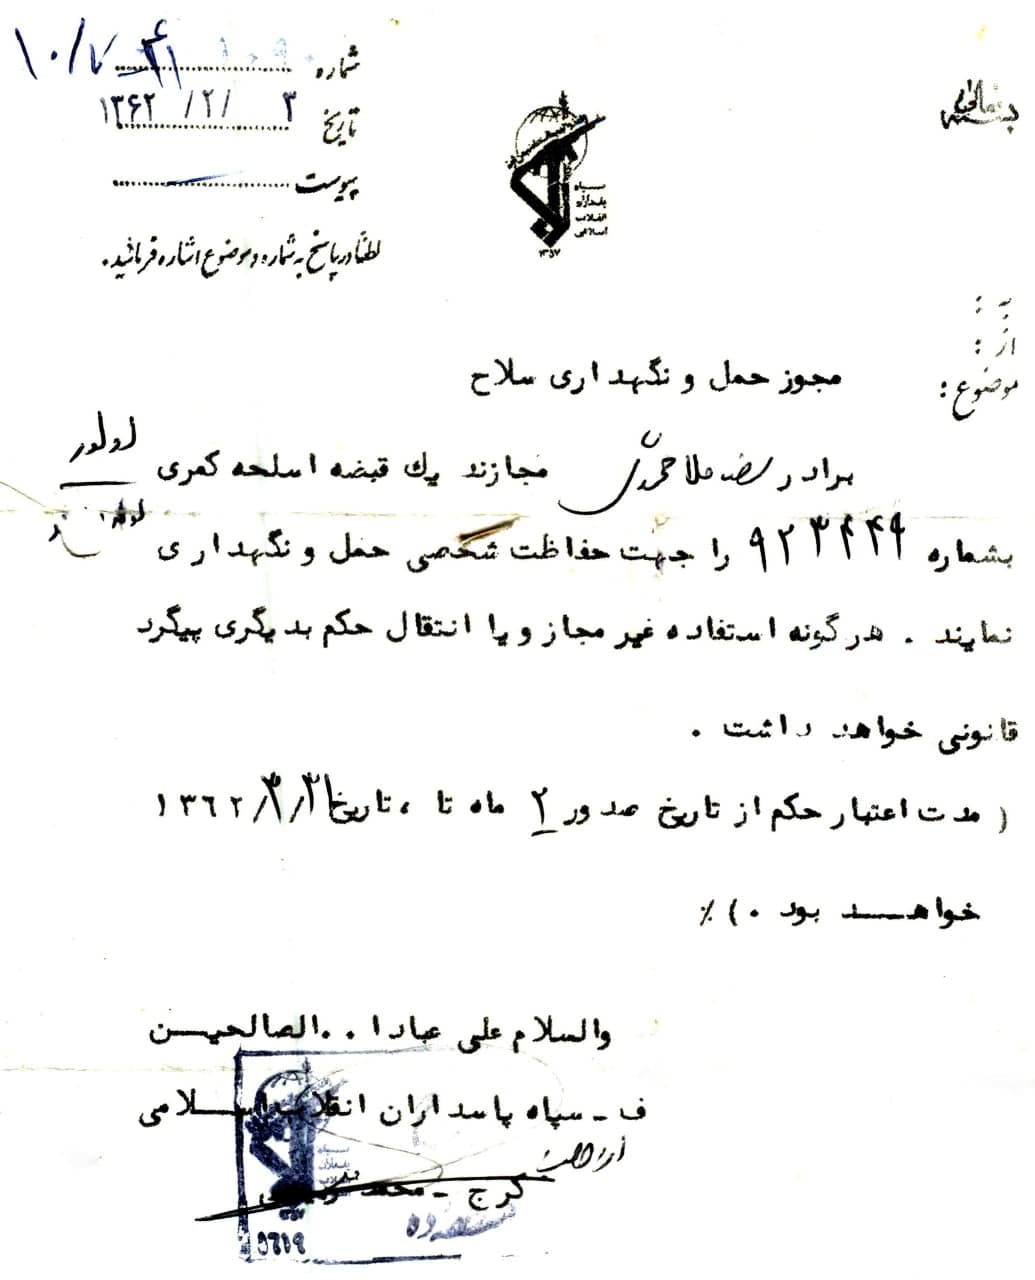 بسمه تعالی
شماره
تاریخ ۱۳۶۲/۲/۳
پیوست
لطفاً در پاسخ به شماره و موضوع اشاره فرمائید.
سپاه
پاسداران
انقلاب
اسلامی
۱۳۵۷
به :
از :
موضوع : مجوز حمل و نگهداری سلاح
برادر مجازند یك قبضه اسلحه کمری
بشماره را جهت حفاظت شخصی حمل و نگهداری
نمایند . هرگونه استفاده غیر مجاز و یا انتقال حکم بدیگری پیگرد
قانونی خواهد داشت .
( مدت اعتبار حکم از تاریخ صدور ۲ ماه تا ، تاریخ ۱۳۶۲/۳/۳۱
خواهد بود . ) ٪
والسلام علی عبادا . . الصالحین
ف ـ سپاه پاسداران انقلاب اسلامی
کرج ـ محمد